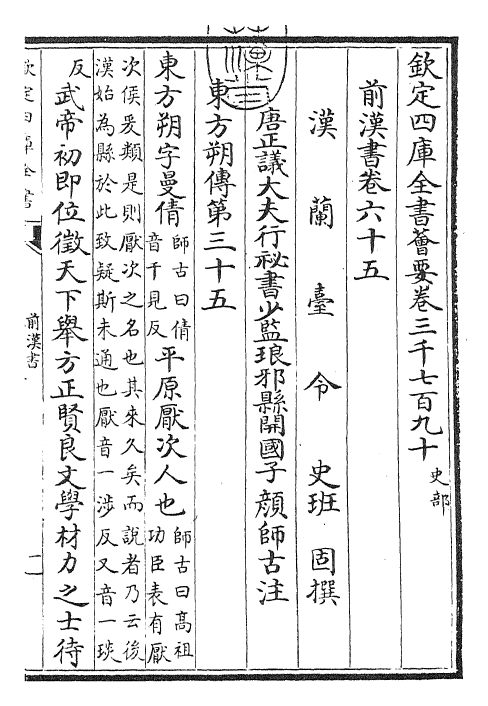 欽定四庫全書薈要卷三千七百九十 史部
前漢書卷六十五
漢蘭臺令史班固撰
唐正議大夫行祕書少監琅邪縣開國子顏師古注
東方朔傳第三十五
東方朔字曼倩師古曰倩音千見反平原厭次人也師古曰高祖功臣表有厭
次侯爰類是則厭次之名也其來久矣而說者乃云後漢始為縣於此致疑斯未通也厭音一涉反又音一琰
反武帝初即位徵天下舉方正賢良文學材力之士待
前漢書